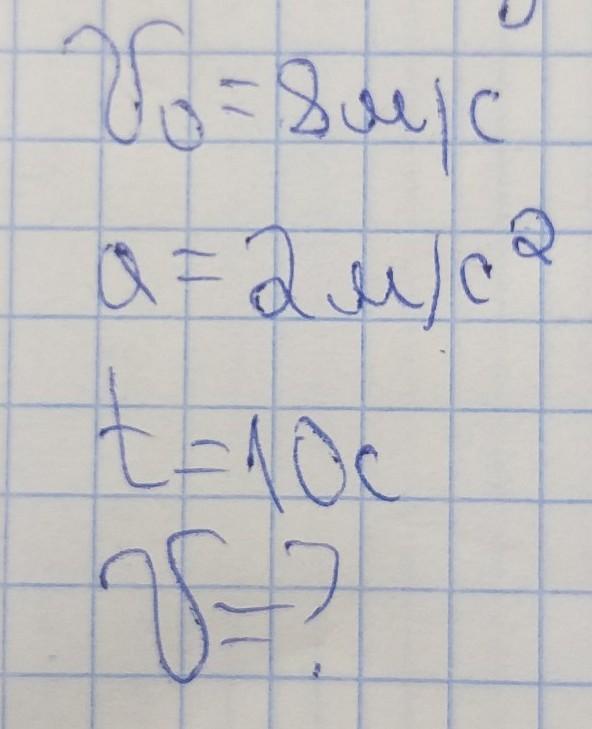 V₀ = 8 м/с
a = 2 м/с²
t = 10с
V = ?